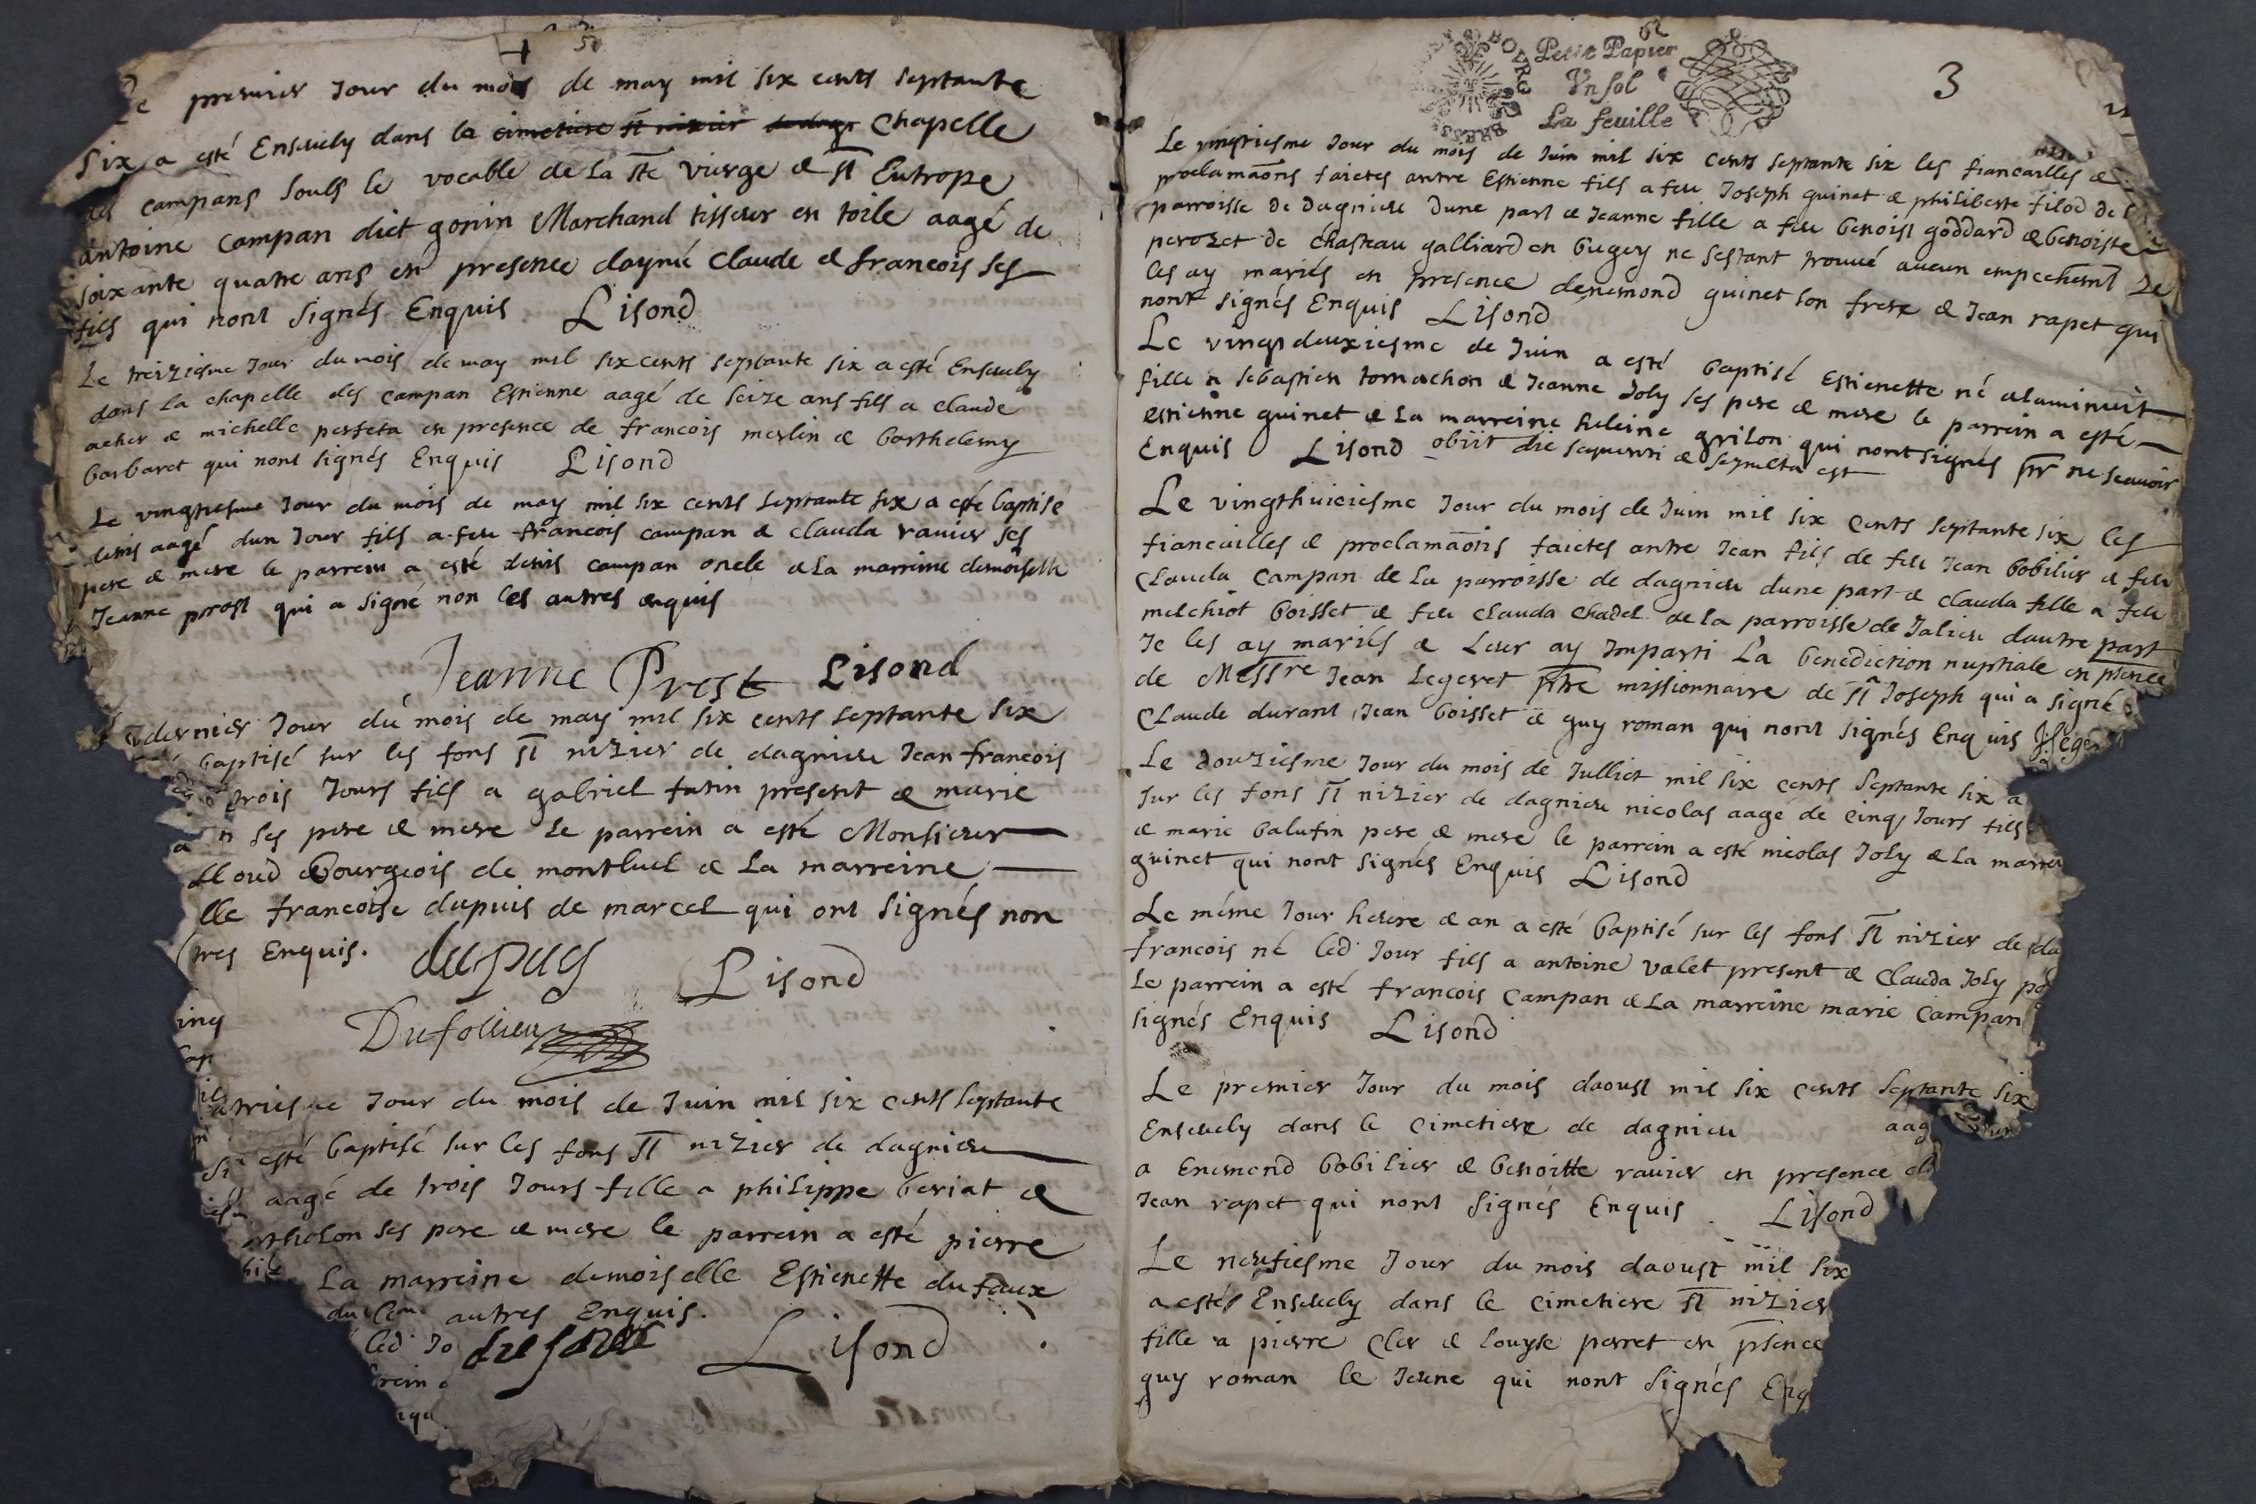 Le premier Jour du mois de may mil six cents septante
six a esté Enseuely dans la cimetiere St nizier Chapelle
des campans souls le vocable de la Ste vierge & St Eutrope
antoine campan dict gonin Marchand tisseur en toile aagé de
soixante quatre ans en presence daymé Claude & francois ses
fils qui nont signés Enquis Lisond
Le treiziesme Jour du mois de may mil six cents septante six a esté Enseuely
dans la chapelle des campan Estienne aagé de seize ans fils a claude
acher & michelle perfeta en presence de francois merlin & barthelemy
barbaret qui nont signés Enquis Lisond
Le vingtiesme Jour du mois de may mil six cents septante six a esté baptisé
denis aagé dun Jour fils a feu francois campan & clauda ravier ses
pere & mere le parrein a esté denis campan oncle & la marreine demoiselle
Jeanne prost qui a signé non les autres enquis
Jeanne Prost Lisond
dernier Jour du mois de may mil six cents septante six
baptisé sur les fons St nizier de dagnieu Jean francois
trois Jours fils a gabriel futin present & marie
n ses pere & mere Le parrein a esté Monsieur
lloud Bourgeois de montluel & la marreine
lle francoise dupuis de marcel qui ont signés non
tres Enquis. dupuy Lisond
Dufollieu
atriesme Jour du mois de Juin mil six cents septante
si esté baptisé sur les fons St nizier de dagnieu
aagé de trois Jours fille a philippe beriat &
artholon ses pere & mere le parrein a esté pierre
La marreine demoiselle Estienette dufaux
autres Enquis.
led Jo dufaux Lisond
rein
3
Petit Papier
Vn sol
La feuille
Le vingtiesme Jour du mois de Juin mil six cents septante six les fiancailles &
proclamaõns faictes antre Estienne fils a feu Joseph guinet & philiberte filod de
parroisse de dagnieu dune part & Jeanne fille a feu benoist goddard & benoiste
perozet de chasteau galliard en bugey ne sestant trouué aucun empechemt Je
les ay mariés en presence denemond guinet son frere & Jean rapet qui
nont signés Enquis Lisond
Le vingt deuxiesme de Juin a esté baptisé Estienette né alaminuit
fille a sebastien tornachon & Jeanne Joly ses pere & mere le parrein a esté
estienne guinet & la marreine heleine grilon qui nont signés pr ne scauoir
Enquis Lisond obiit die sequenti & sepulta est
Le vingthuiciesme Jour du mois de Juin mil six cents septante six les
fiancailles & proclamaõns faictes antre Jean fils de feu Jean bobilier & feu
Clauda Campan de la parroisse de dagnieu dune part & clauda fille a feu
melchiot boisset & feu clauda chadel de la parroisse de Jalieu dautre part
Je les ay mariés & Leur ay Imparti La benediction nuptiale en psence
de Messre Jean Legeret ptre missionnaire de St Joseph qui a signé
Claude durant Jean boisset & guy roman qui nont signés Enquis J Leger
Le douziesme Jour du mois de Julliet mil six cents septante six a
sur les fons St nizier de dagnieu nicolas aagé de cinq Jours fils
& marie balufin pere & mere le parrein a esté nicolas Joly & la marrei
guinet qui nont signés Enquis Lisond
Le méme Jour heure & an a esté baptisé sur les fons St nizier de da
francois né led Jour fils a antoine valet present & Clauda Joly pe
Le parrein a esté francois Campan & La marreine marie Campan
signés Enquis Lisond
Le premier Jour du mois daoust mil six cents septante six
Enseuely dans le Cimetiere de dagnieu aag
a Enemond bobilier & benoitte ravier en presence
Jean rapet qui nont signés Enquis Lisond
Le neufiesme Jour du mois daoust mil six
a esté Enseuely dans le cimetiere St nizier
fille a pierre Cler & Louyse perret en psence
guy roman le Jeune qui nont signés Enq